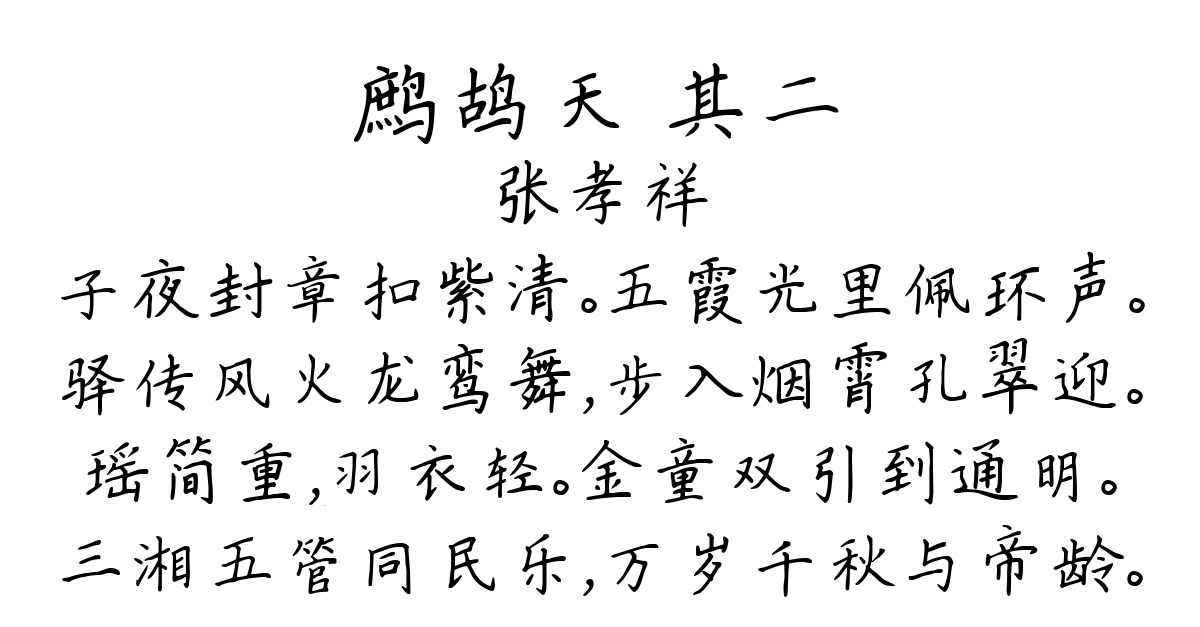 鹧鸪天 其二
张孝祥
子夜封章扣紫清。五霞光里佩环声。
驿传风火龙鸾舞,步入烟霄孔翠迎。
瑶简重,羽衣轻。金童双引到通明。
三湘五管同民乐,万岁千秋与帝龄。